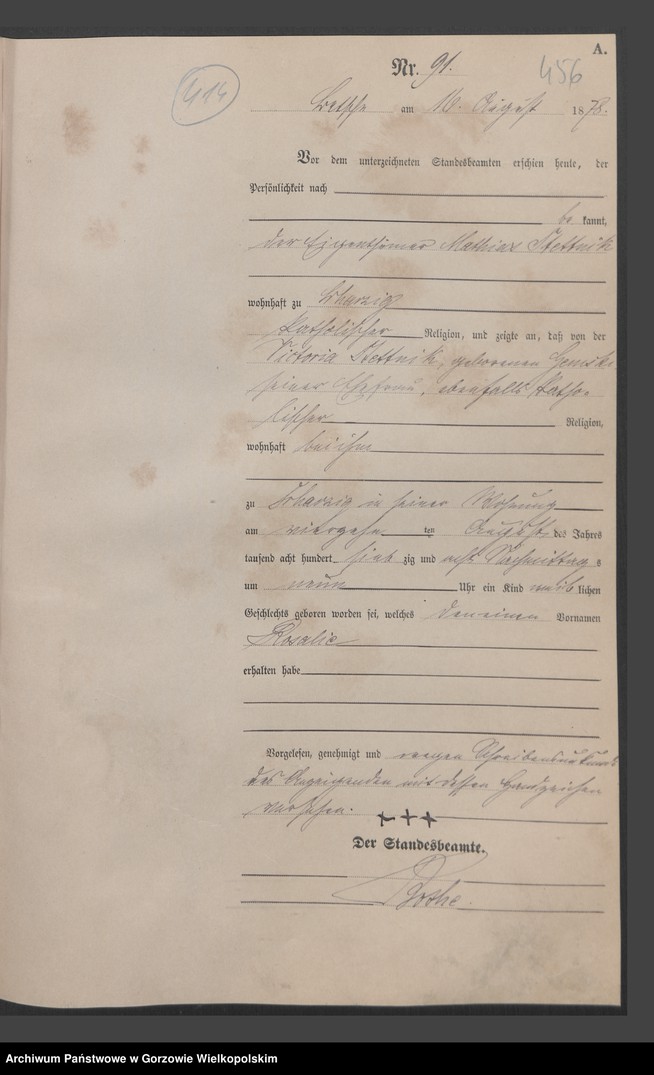 A.
Nr. 91.
456
414
Betsche am 16. August 1878.
Vor dem unterzeichneten Standesbeamten erschien heute, der
Persönlichkeit nach
be kannt,
der Eigenthümer Mathias Stettnik
wohnhaft zu Scharzig
katholischer Religion, und zeigte an, daß von der
Victoria Stettnik, geborenen
seiner Ehefrau, ebenfalls katho-
lischer Religion,
wohnhaft bei ihm
zu Scharzig in seiner Wohnung
am vierzehn ten August des Jahres
tausend acht hundert sieb zig und acht Nachmittag s
um neun Uhr ein Kind weib lichen
Geschlechts geboren worden sei, welches den einen Vornamen
Rosalie
erhalten habe
Vorgelesen, genehmigt und wegen Schreibensunkunde
des Anzeigenden mit dessen Handzeichen
versehen.
+++
Der Standesbeamte.
Archiwum Państwowe w Gorzowie Wielkopolskim